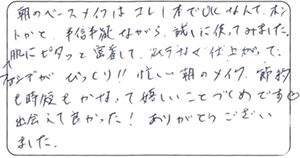 朝のベースメイクはコレ1本でOKなんて、ホン
トかと、半信半疑ながら、試しに使ってみました。
肌にピタッと密着して、ムラなく仕上がって、
びっくり!! 忙しい朝のメイク、節約
も時短もかなって嬉しいことづくめです
出会えて良かった！ありがとうござい
ました。